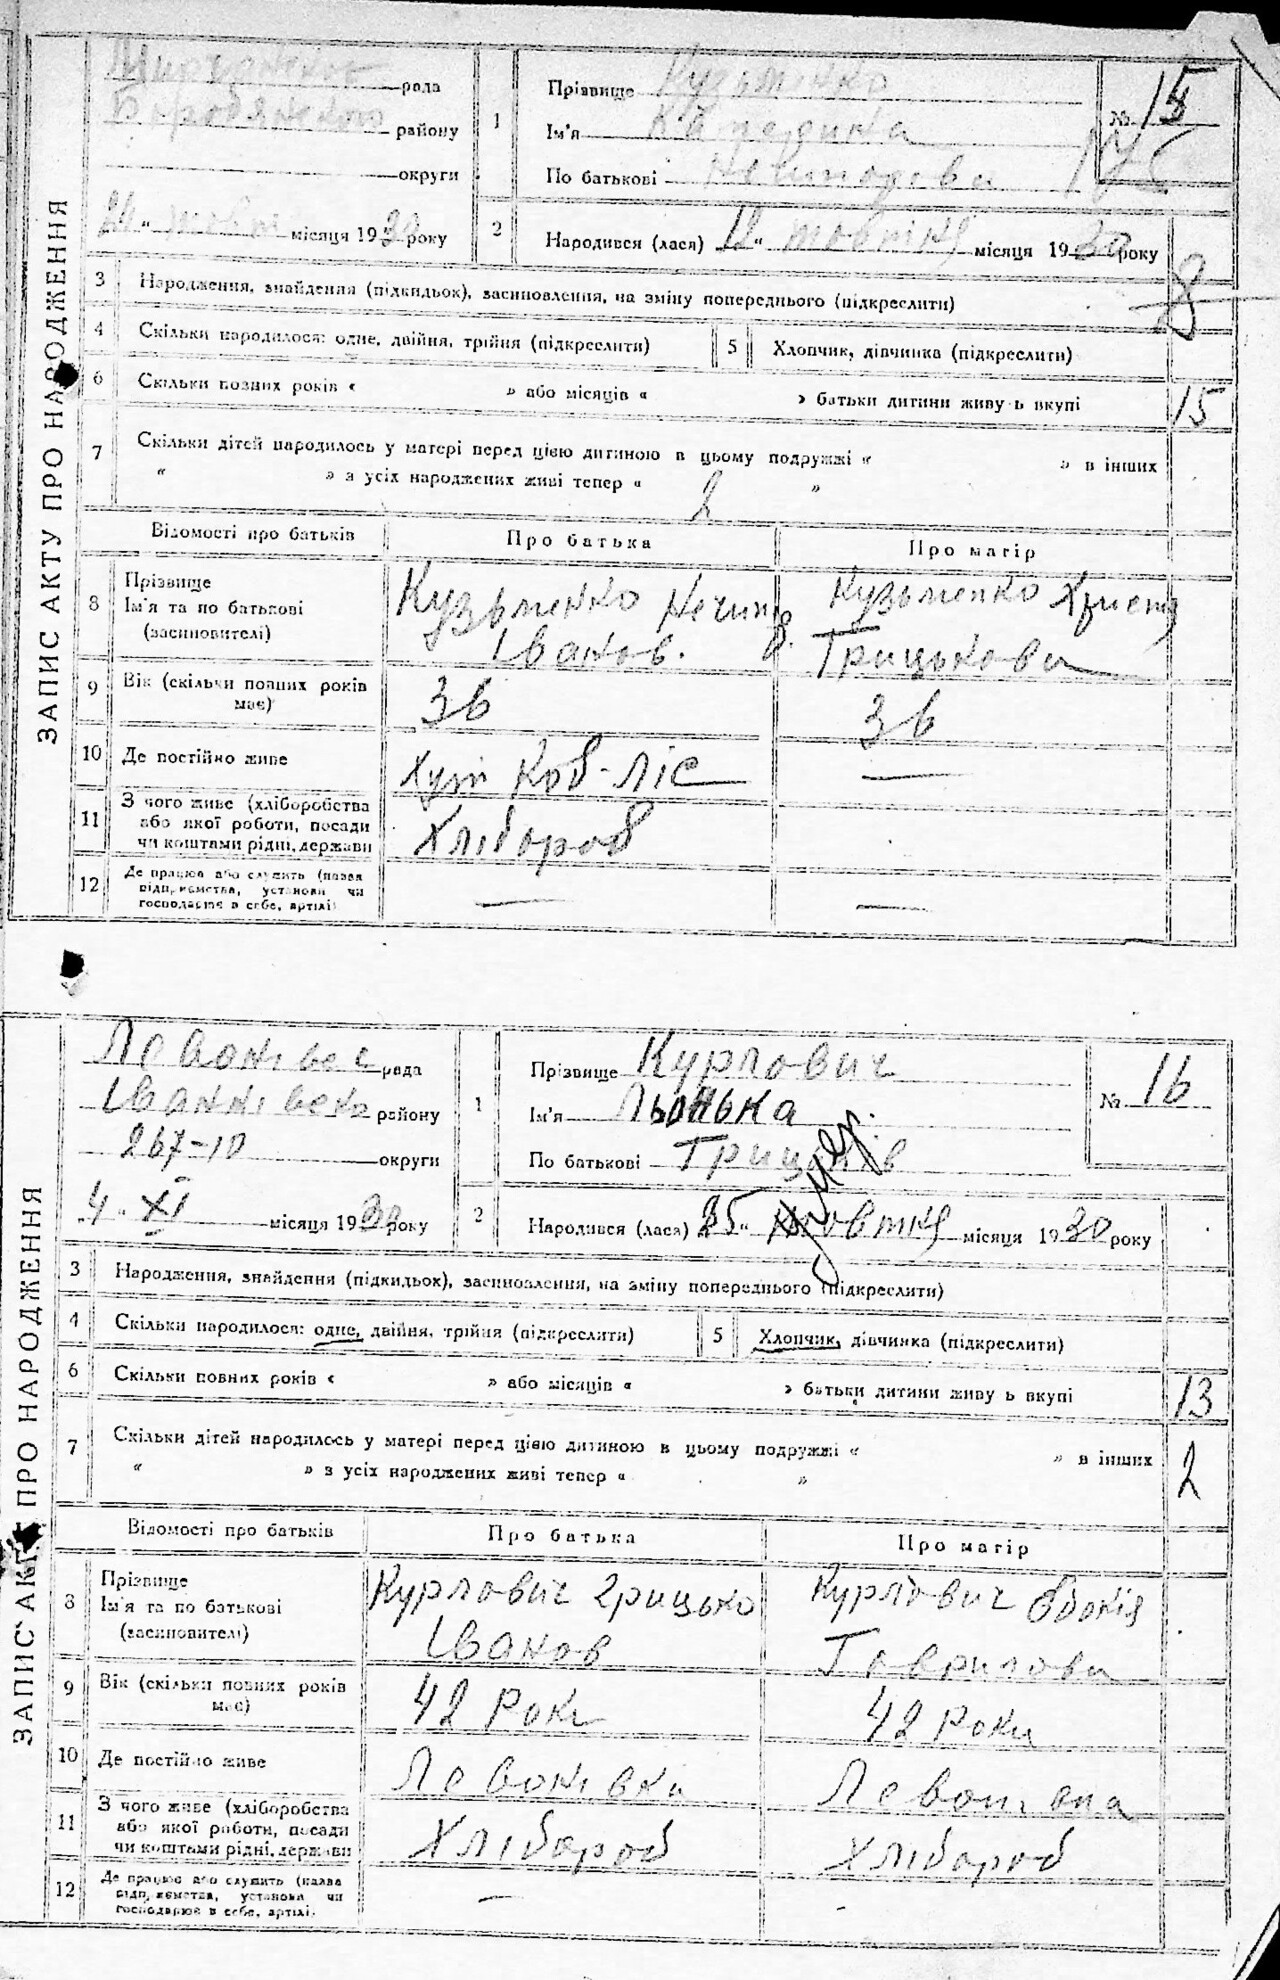 ЗАПИС АКТУ ПРО НАРОДЖЕННЯ
рада
Бородянського району
округи
24 " жовтн місяця 1930 року
1
Прізвище Кузьменко
Ім'я Катерина
По батькові Нечипорова
№ 15
2
Народився (лася) 12 " жовтня місяця 1930 року
8
3 Народження, знайдення (підкидьок), засиновлення, на зміну попереднього (підкреслити)
4 Скільки народилося: одне, двійня, трійня (підкреслити)
5 Хлопчик, дівчинка (підкреслити)
6 Скільки повних років « » або місяців « » батьки дитини живу ь вкупі
15
7 Скільки дітей народилось у матері перед цією дитиною в цьому подружжі « » в інших
« » з усіх народжених живі тепер « 2 »
Відомості про батьків Про батька Про матір
8 Прізвище Ім'я та по батькові (засиновителі)
Кузьменко Нечипор
Іванов.
Кузьменко Христя
Грицькова
9 Вік (скільки повних років має) 36 36
10 Де постійно живе Хут Коб-Ліс —
11 З чого живе (хліборобства або якої роботи, посади чи коштами рідні, держави Хлібороб
12 Де працює або служить (назва підприємства, установи чи господарює в себе, артілі) — —
ЗАПИС АКТ ПРО НАРОДЖЕННЯ
Левонівс рада
Іванківсько району
267-10 округи
4 " XI місяця 1930 року
1
Прізвище Курлович
Ім'я Льонька
По батькові Грицьків
умер.
№ 16
2
Народився (лася) 25 " жовтня місяця 1930 року
3 Народження, знайдення (підкидьок), засиновлення, на зміну попереднього (підкреслити)
4 Скільки народилося: одне, двійня, трійня (підкреслити)
5 Хлопчик, дівчинка (підкреслити)
6 Скільки повних років « » або місяців « » батьки дитини живу ь вкупі
13
7 Скільки дітей народилось у матері перед цією дитиною в цьому подружжі « » в інших
« » з усіх народжених живі тепер « »
2
Відомості про батьків Про батька Про матір
8 Прізвище Ім'я та по батькові (засиновителі)
Курлович Грицько
Іванов
Курлович Євдокія
Гаврилова
9 Вік (скільки повних років має) 42 Роки 42 Роки
10 Де постійно живе Левонівка Левонівка
11 З чого живе (хліборобства або якої роботи, посади чи коштами рідні, держави Хлібороб Хлібороб
12 Де працює або служить (назва підприємства, установа чи господарює в себе, артілі. —